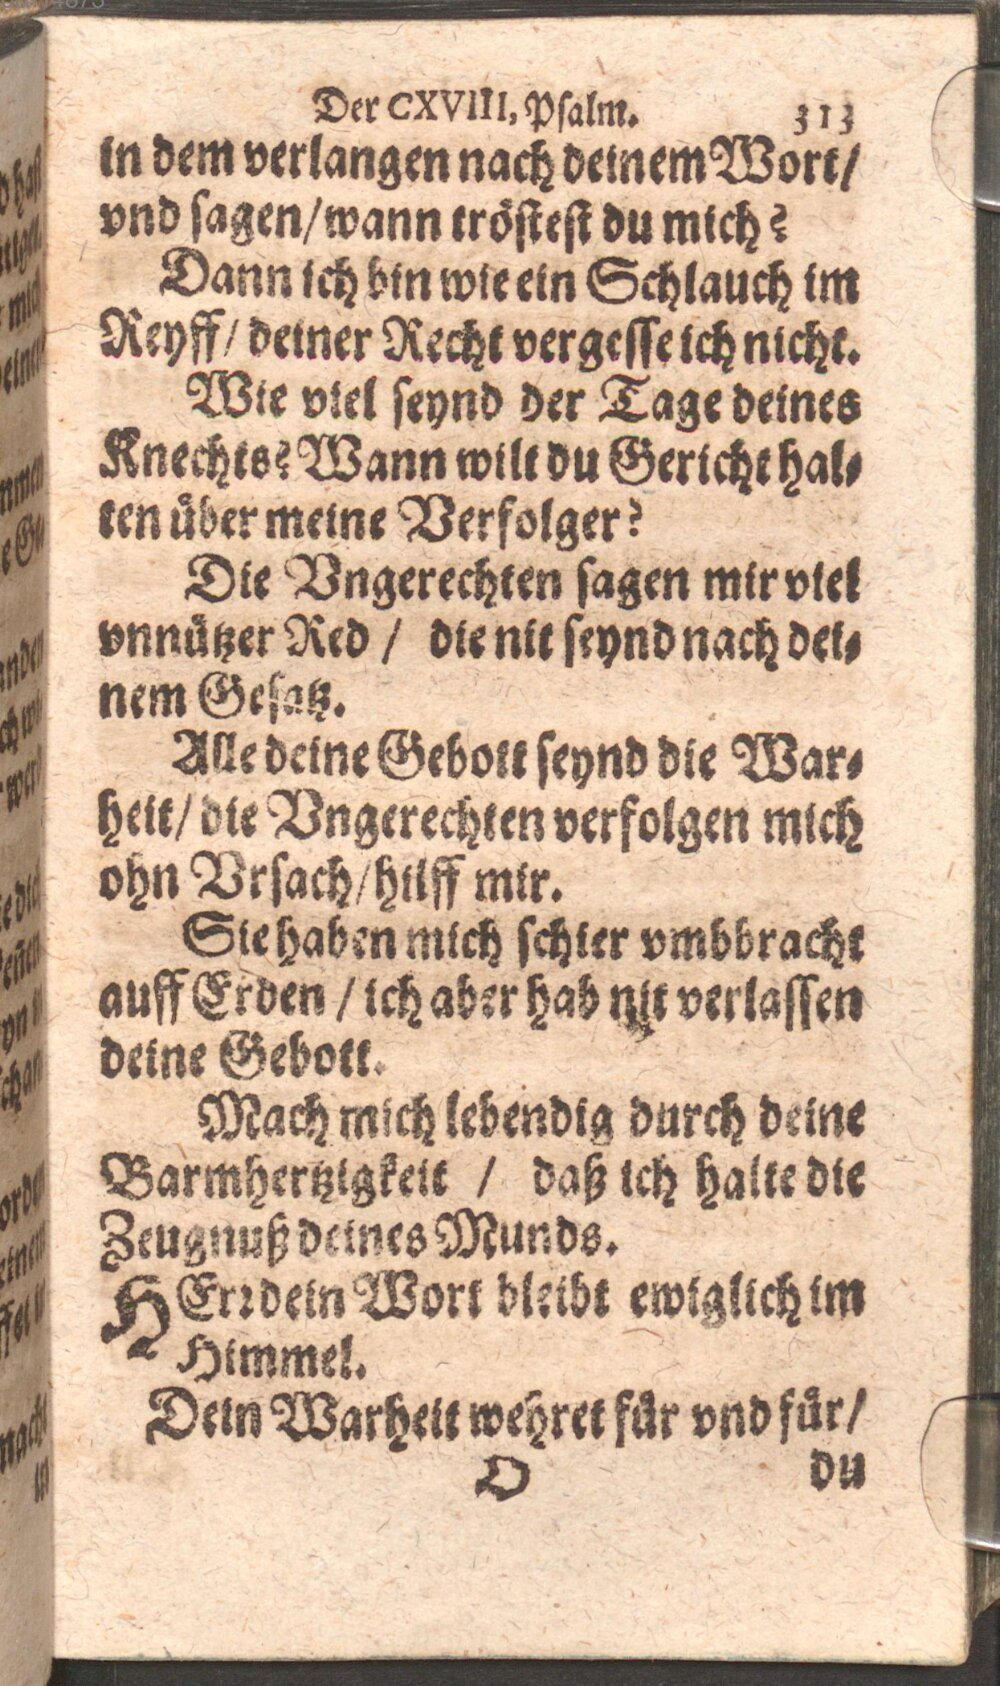 Der CXVIII, Psalm. 313
in dem verlangen nach deinem Wort/
vnd sagen/wann tröstest du mich?
Dann ich bin wie ein Schlauch im
Reyff/ deiner Recht vergesse ich nicht.
Wie viel seynd der Tage deines
Knechts? Wann wilt du Gericht hal⸗
ten uͤber meine Verfolger?
Die Vngerechten sagen mir viel
vnnuͤtzer Red / die nit seynd nach dei⸗
nem Gesatz.
Alle deine Gebott seynd die War⸗
heit/ die Vngerechten verfolgen mich
ohn Vrsach/hilff mir.
Sie haben mich schier vmbbracht
auff Erden / ich aber hab nit verlassen
deine Gebott.
Mach mich lebendig durch deine
Barmhertzigkeit / daß ich halte die
Zeugnuß deines Munds.
HErr dein Wort bleibt ewiglich im
Himmel.
Dein Warheit wehret fuͤr vnd fuͤr/
O du